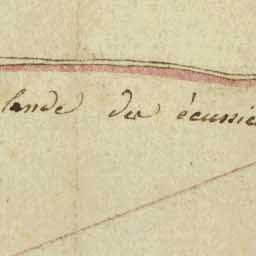 lande des écussie